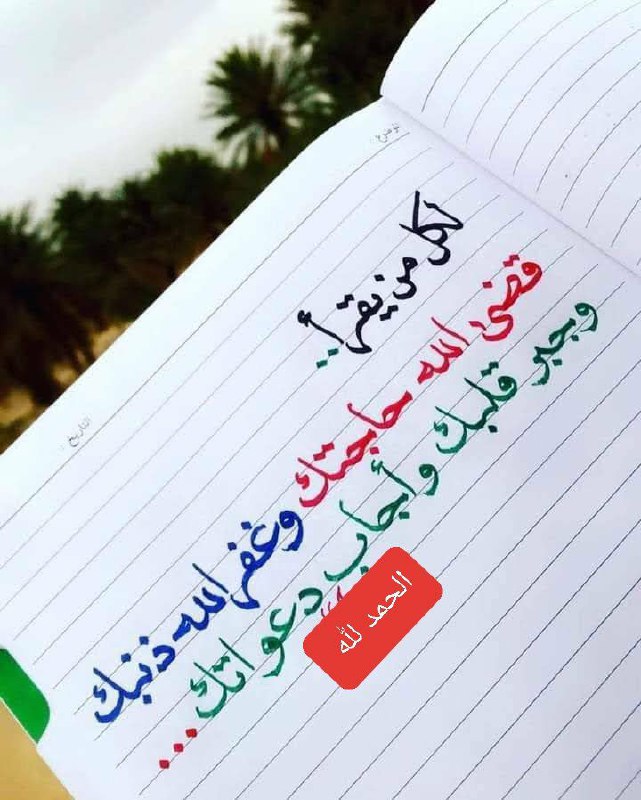 الموضوع:
التاريخ:
لكل من يقرأ..
قضى الله حاجتك وغفر الله ذنبك
وجبر قلبك وأجاب دعواتك...
الحمد لله